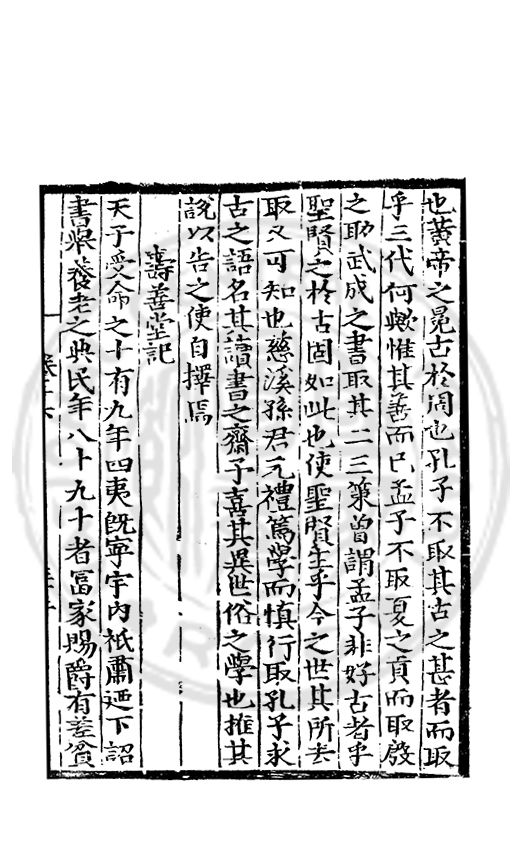 也黃帝之冕古於周也孔子不取其古之甚者而取
乎三代何歟惟其善而已孟子不取夏之貢而取殷
之助武成之書取其二三策曾謂孟子非好古者乎
聖賢之於古固如此也使聖賢生乎今之世其所去
取又可知也慈溪孫君元禮篤學而慎行取孔子求
古之語名其讀書之齋予喜其異世俗之學也推其
說以告之使自擇焉
壽善堂記
天子受命之十有九年四夷旣寧宇內祇肅迺下詔
書舉養老之典民年八十九十者富家賜爵有差貧